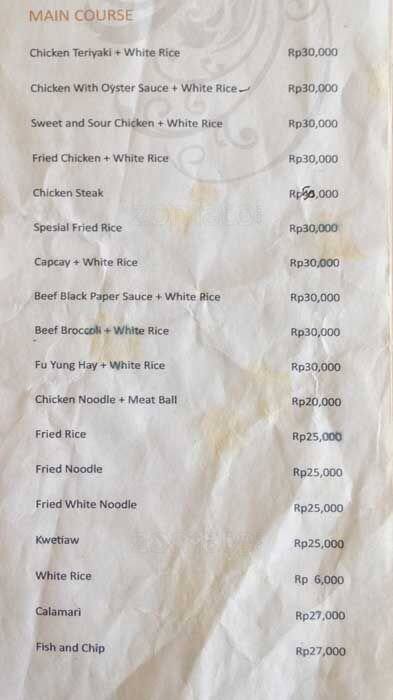 MAIN COURSE
Chicken Teriyaki + White Rice Rp30,000
Chicken With Oyster Sauce + White Rice Rp30,000
Sweet and Sour Chicken + White Rice Rp30,000
Fried Chicken + White Rice Rp30,000
Chicken Steak Rp50,000
Spesial Fried Rice Rp30,000
Capcay + White Rice Rp30,000
Beef Black Paper Sauce + White Rice Rp30,000
Beef Broccoli + White Rice Rp30,000
Fu Yung Hay + White Rice Rp30,000
Chicken Noodle + Meat Ball Rp20,000
Fried Rice Rp25,000
Fried Noodle Rp25,000
Fried White Noodle Rp25,000
Kwetiaw Rp25,000
White Rice Rp 6,000
Calamari Rp27,000
Fish and Chip Rp27,000